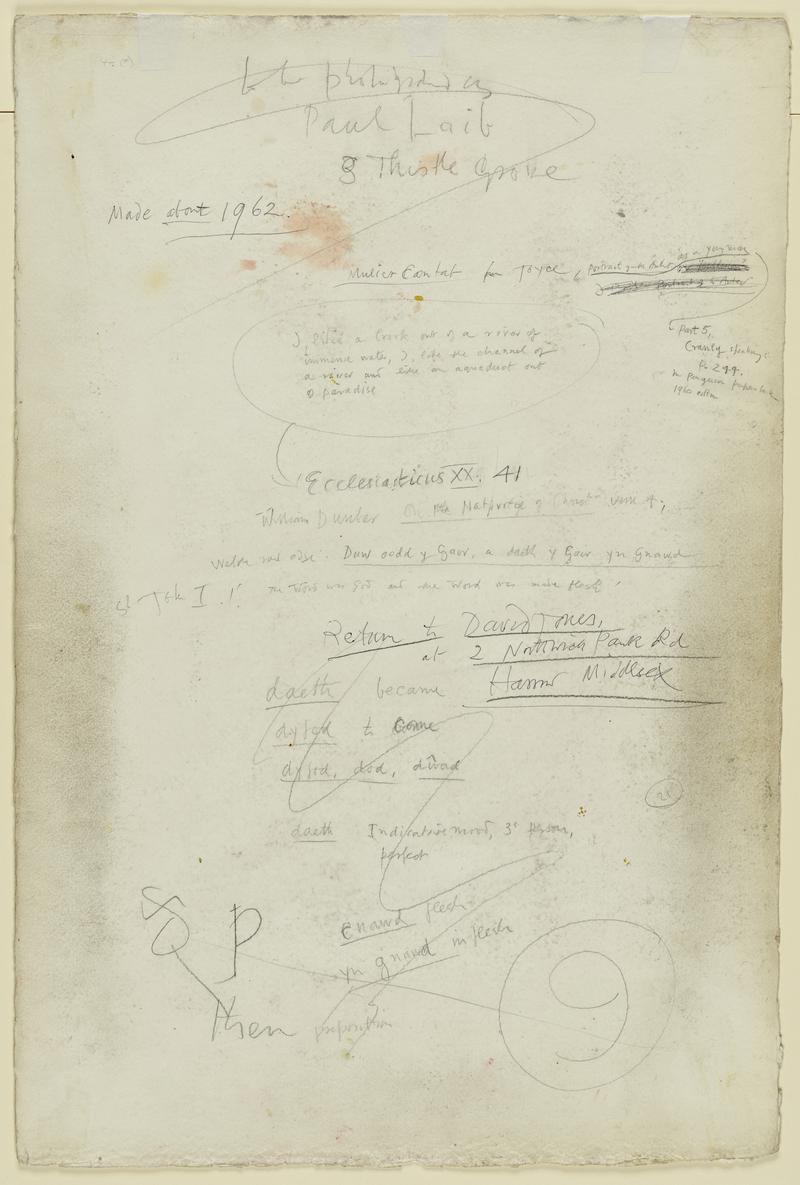 to the photographers
Paul Laib
8 Thistle Grove
Made about 1962.
Mulier Cantat from Joyce, Portrait of the Artist as a young man
Part 5,
Cranly speaking:
in Penguin paper back
1960 edition
I, like a brook out of a river of
immense water, I, like the channel of
a river and like an aqueduct out
of paradise
Ecclesiasticus XX. 41
William Dunbar On the Nativitie of Christ verse 4;
Welsh Duw oedd y Gair, a daeth y Gair yn Gnawd
St John I. 1. The Word was God and the Word was made flesh
Return to David Jones,
at 2 Northwick Park Rd
Harrow Middlesex
daeth became
dyfod to come
dyfod, dod, dŵad
21
daeth Indicative mood, 3rd person,
perfect
cnawd flesh
yn gnawd in flesh
P
then preposition
9